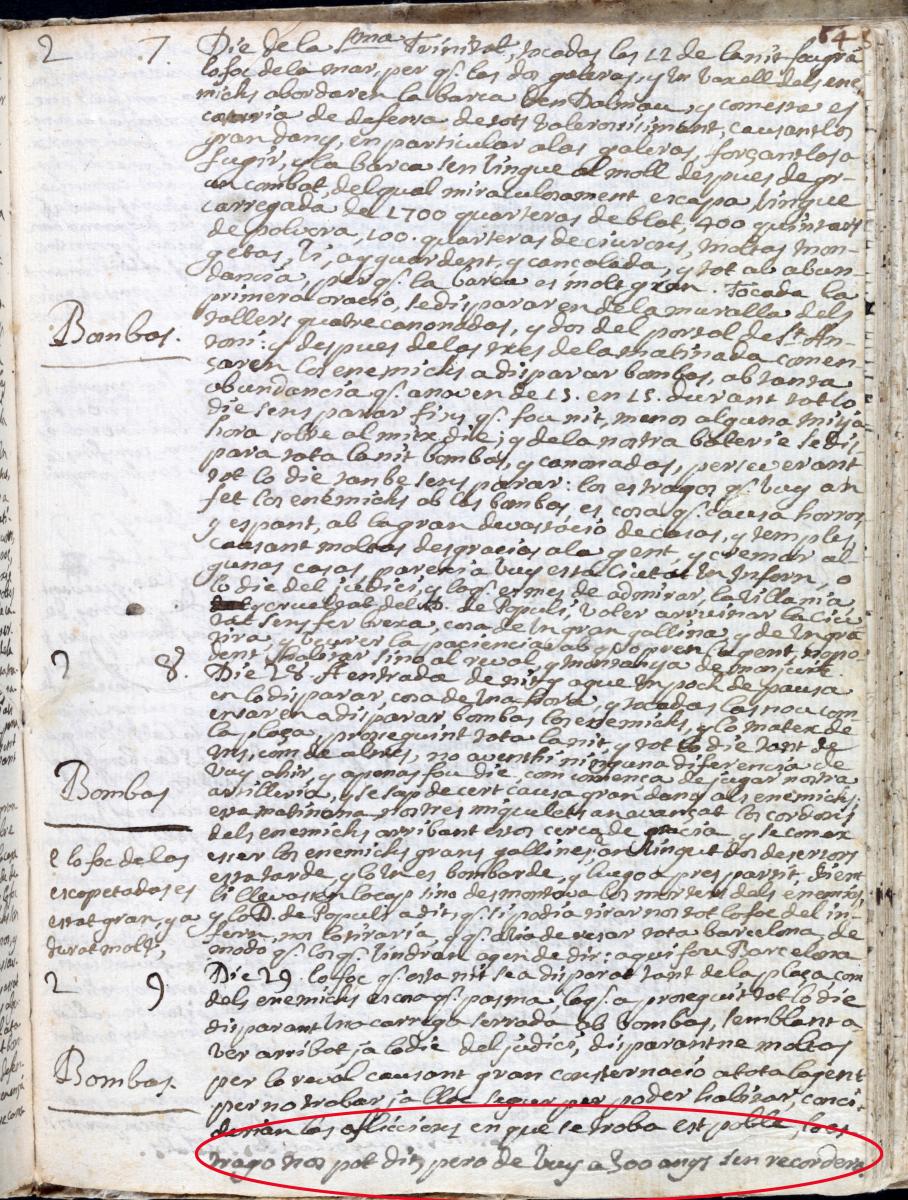 64
2 7. Die de la Sma Trinitat, tocadas las 12 de la nit fou gran
lo foc de la mar, per qs. las dos galeras, y un vaxell dels ene
micks abordaren la barca den Dalmau, y comesta es
costaria de defensa de tots valerosissimant, causantlos
gran dany, en particular a las galeras, forçantlos a
fugir, y la barca sen vingue al moll despues de gr
an combat, del qual miraculosament escapa, vingue
carregada de 1700 quarteras de blat, 400 quintars
de polvora, 100. quarteras de ciurons, moltas mon
getas, vi, ayguardent, y cansalada, y tot ab abun
dancia, per qs. la barca es molt gran. Tocada la
primera oracio, se dispararen de la muralla dels
tallers quatre canonadas, y dos del portal de St. An
Bombas.
toni: y despues de las tres de la matinada comen
saren los enemicks a disparar bombas, ab tanta
abundancia qs. anaven de 13. en 15. durant tot lo
die sens parar fins qs. fou nit, menos alguna mitja
hora sobre al mitx die; y de la nostra baterie se dis
para tota la nit bombas, y canonadas, perseverant
tot lo die tanbe sens parar: los estragos qs. vuy an
fet los enemicks ab las bombas, es cosa qs. causa horror,
y espant, ab la gran devastacio de casas, y temples
causant moltas desgracias a la gent, y cremar al
gunas casas, parexia vuy esta Ciutat un Infern, o
lo die del judici, y los. es mes de admirar la villania,
y crueltat del D. de Populi, voler arruinar la Ciu
tat sens fer brexa, cosa de un gran gallina, y de un gra
tira, y veurer la paciencia ab qs. so pren la gent, no po
dent habitar sino al raval, y montanya de monjuich
2 8. Die 28. A entrada de nit y a que un poch de pausa
en lo disparar, cosa de una hora, y tocadas las nou com
ensaren a disparar, bombas los enemicks, y lo matex de
la plaça, prosequint tota la nit, y tot lo die tant de
uns, com de altres, no aventhi ninguna diferencia de
Bombas
vuy ahir, y apenas fou die, com comença de jugar nostra
artilleria, y se sap de cert causa gran dany als enemicks,
esta matinada nostres miquelets an avançat los cordons
dels enemicks arribant estos cerca de gracia, y se conex
esser los enemicks grans gallines, an vingut dos desertors
esta tarde, y lo un es bombarde, y luego a pres partit, dient
li llevassen lo cap sino desmontava los morters dels enemics,
y lo D. de Populi a dit, qs. si podia tirarnos tot lo foc del in
fern, nos lo tiraria, y qs. avia de cesar tota barcelona, de
modo qs. los qs. vindran agen de dir: aqui fou Barcelona
e lo foc de las
escopetadas es
estat gran, y a
durat molt,
2 9 Die 29. lo foc qs. esta nit se a disparat tant de la plaça com
dels enemicks es cosa qs. pasma, los. a prosequit tot lo die
disparant una carrega serrada ab bombas, semblant a
ver arribat ja lo die del judici, disparantne moltas
Bombas.
per lo raval causant gran consternacio a tota la gent
per no trobar ja lloc segur per poder habitar, consi
derian las afliccions en que se troba est poble, lo es
trago nos pot dir, pero de vuy a 300 anys sen recordera.